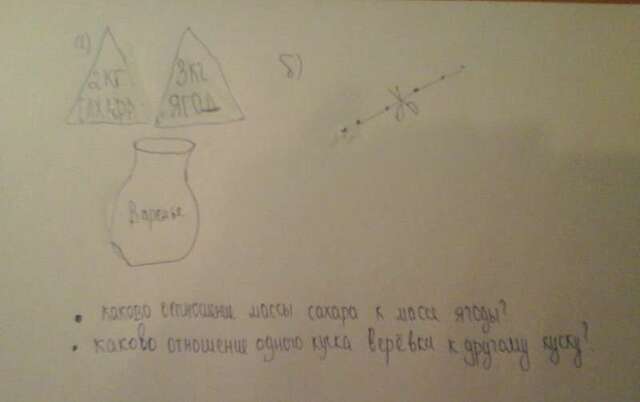 а)
2 кг
САХАРА
3 кг
ЯГОД
б)
Варенье
• каково отношение массы сахара к массе ягоды?
• каково отношение одного куска верёвки к другому куску?